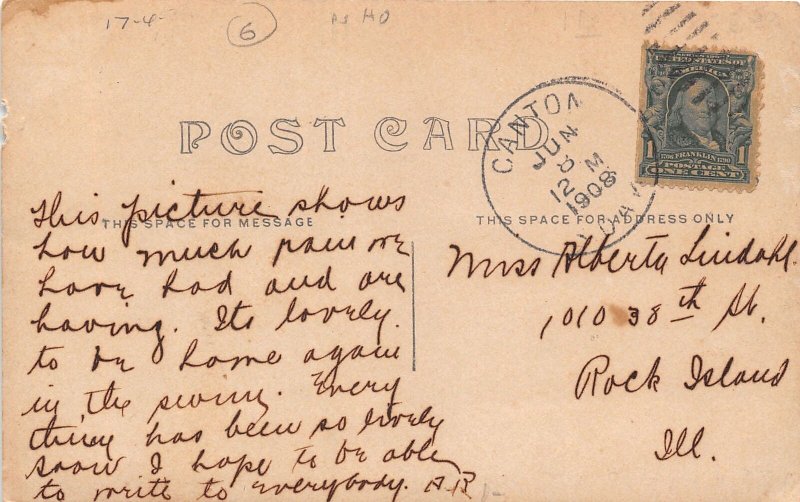 17-4-
6
POST CARD
CANTON
JUN
8
12 M
1908
UNITED STATES OF AMERICA
1706 FRANKLIN 1790
POSTAGE
1 1
ONE CENT
THIS SPACE FOR MESSAGE
THIS SPACE FOR ADDRESS ONLY
This picture shows
how much rain we
have had and are
having. Its lovely
to be home again
in the swing. Every
thing has been so lively
soon I hope to be able
to write to everybody. A.R.
Miss Alberta Lindahl.
1010 38th St.
Rock Island
Ill.